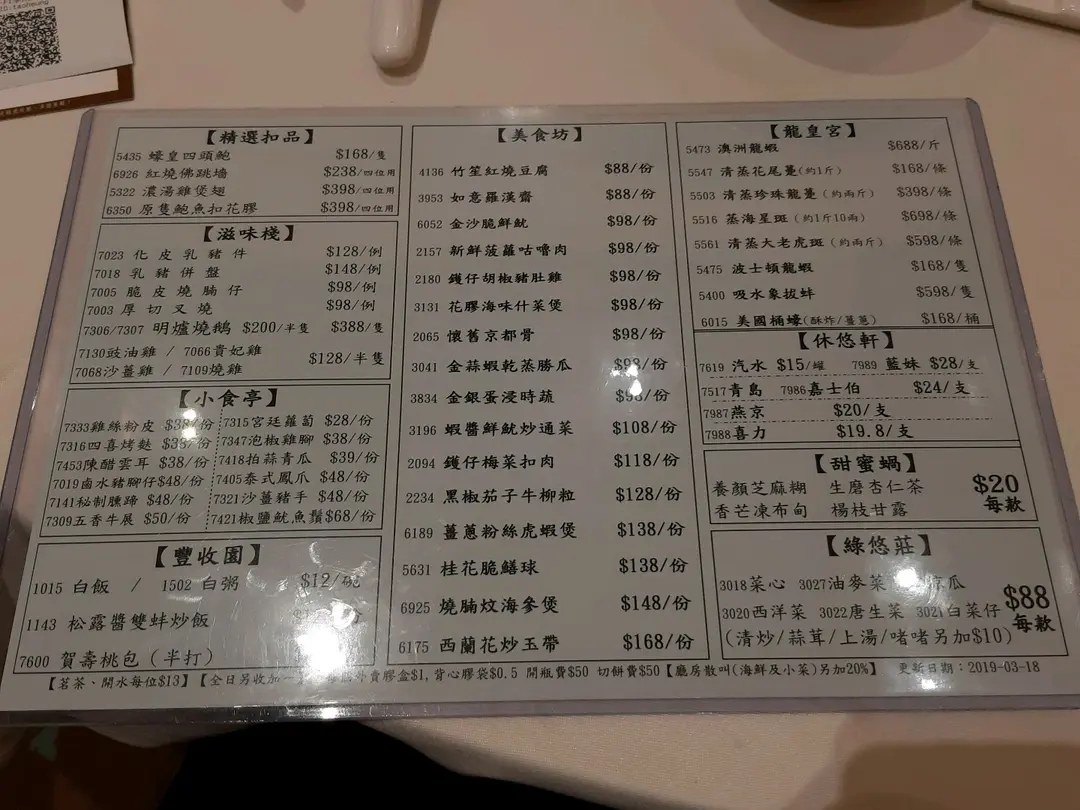 【精選扣品】
5435 蠔皇四頭鮑 $168/隻
6926 紅燒佛跳墻 $238/四位用
5322 濃湯雞煲翅 $398/四位用
6350 原隻鮑魚扣花膠 $398/四位用
【滋味棧】
7023 化皮乳豬件 $128/例
7018 乳豬併盤 $148/例
7005 脆皮燒腩仔 $98/例
7003 厚切叉燒 $98/例
7306/7307 明爐燒鵝 $200/半隻 $388/隻
7130豉油雞 / 7066貴妃雞
7068沙薑雞 / 7109燒雞 $128/半隻
【小食亭】
7333雞絲粉皮 $38/份 7315宮廷蘿蔔 $28/份
7316四喜烤麩 $38/份 7347泡椒雞腳 $38/份
7453陳醋雲耳 $38/份 7418拍蒜青瓜 $39/份
7019鹵水豬腳仔$48/份 7405泰式鳳爪 $48/份
7141秘制騰蹄 $48/份 7321沙薑豬手 $48/份
7309五香牛展 $50/份 7421椒鹽魷魚鬚$68/份
【豐收園】
1015 白飯 / 1502 白粥 $12/碗
1143 松露醬雙蚌炒飯
7600 賀壽桃包（半打）
【美食坊】
4136 竹笙紅燒豆腐 $88/份
3953 如意羅漢齋 $88/份
6052 金沙脆鮮魷 $98/份
2157 新鮮菠蘿咕嚕肉 $98/份
2180 鑊仔胡椒豬肚雞 $98/份
3131 花膠海味什菜煲 $98/份
2065 懷舊京都骨 $98/份
3041 金蒜蝦乾蒸勝瓜 $98/份
3834 金銀蛋浸時蔬 $98/份
3196 蝦醬鮮魷炒通菜 $108/份
2094 鑊仔梅菜扣肉 $118/份
2234 黑椒茄子牛柳粒 $128/份
6189 薑蔥粉絲虎蝦煲 $138/份
5631 桂花脆鱔球 $138/份
6925 燒腩炆海參煲 $148/份
6175 西蘭花炒玉帶 $168/份
【龍皇宮】
5473 澳洲龍蝦 $688/斤
5547 清蒸花尾躉(約1斤) $168/條
5503 清蒸珍珠龍躉（約兩斤） $398/條
5516 蒸海星斑（約1斤10兩） $698/條
5561 清蒸大老虎斑（約兩斤） $598/條
5475 波士頓龍蝦 $168/隻
5400 吸水象拔蚌 $598/隻
6015 美國桶蠔(酥炸/薑蔥) $168/桶
【休悠軒】
7619 汽水 $15/罐 7989 藍妹 $28/支
7517青島 7986嘉士伯 $24/支
7987燕京 $20/支
7988喜力 $19.8/支
【甜蜜蝸】
養顏芝麻糊 生磨杏仁茶 $20
香芒凍布甸 楊枝甘露 每款
【綠悠莊】
3018菜心 3027油麥菜 涼瓜 $88
3020西洋菜 3022唐生菜 3021白菜仔 每款
(清炒/蒜茸/上湯/啫啫另加$10)
【茗茶、開水每位$13】【全日另收加一 外賣膠盒$1,背心膠袋$0.5 開瓶費$50 切餅費$50【廳房散叫(海鮮及小菜)另加20%】 更新日期：2019-03-18